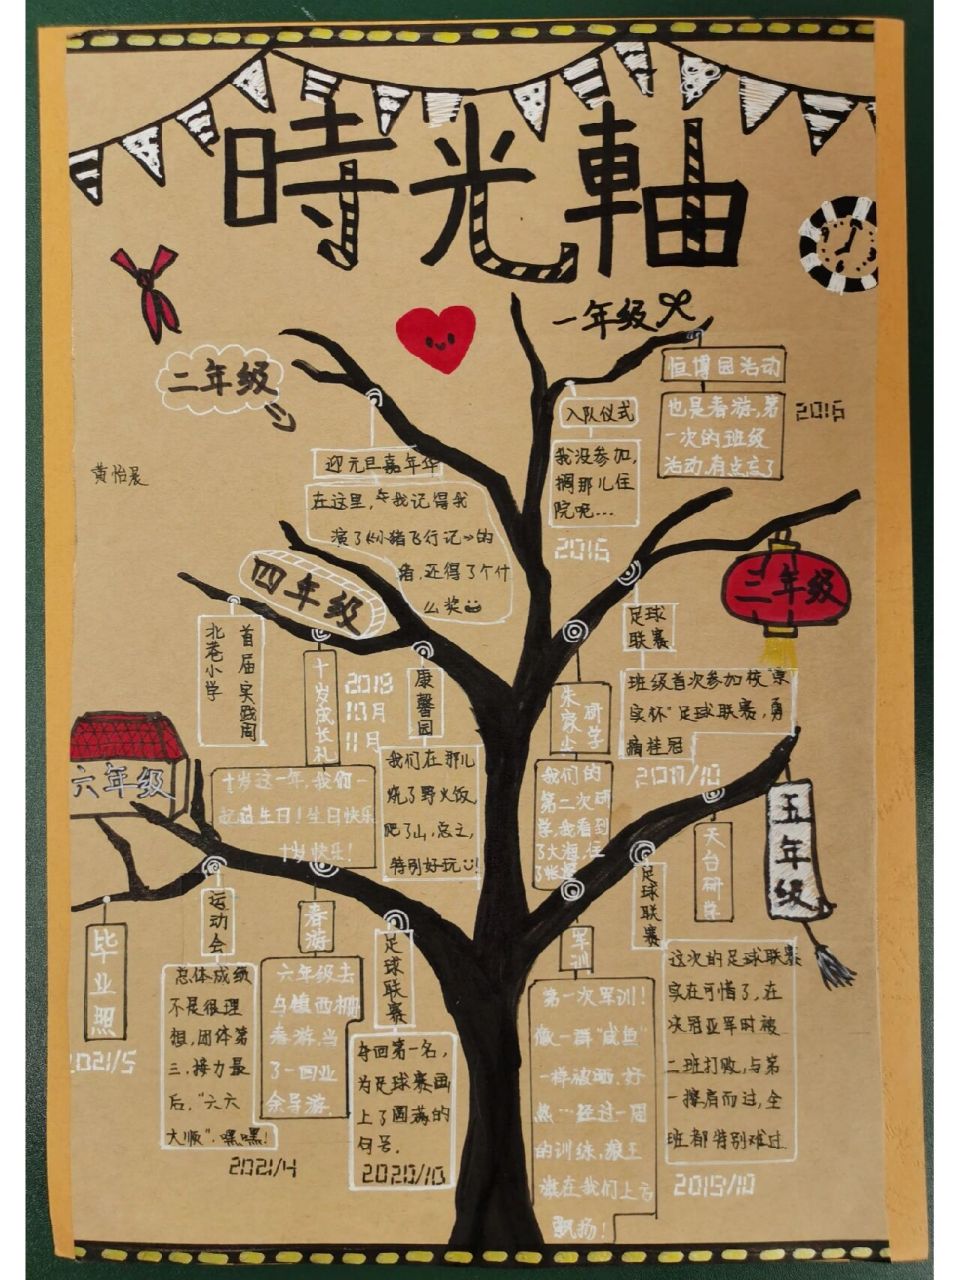 時光軸
一年级
恒博园活动
也是春游,第
一次的班级
活动,有点忘了
2016
入队仪式
我没参加,
搁那儿住
院呢…
2016
二年级
黄怡晨
迎元旦嘉年华
在这里,我记得我
演了《小猪飞行记》的
猪,还得了个什
么奖
三年级
足球
联赛
班级首次参加校“崇
实杯”足球联赛,勇
摘桂冠
2017/10
朱家尖
研学
我们的
第二次研
学,我看到
了大海,住
了帐篷
四年级
北巷小学
首届实践周
十岁成长礼
2018
10月
11月
十岁这一年,我们一
起过生日!生日快乐
十岁快乐!
康馨园
我们在那儿
烧了野火饭,
爬了山,总之,
特别好玩!
五年级
天台研学
足球联赛
这次的足球联赛
实在可惜了,在
决冠亚军时被
二班打败,与第
一擦肩而过,全
班都特别难过
2019/10
军训
第一次军训!
像一群“咸鱼”
一样被晒,好
热…经过一周
的训练,狼王
旗在我们上方
飘扬!
六年级
毕业照
2021/5
运动会
总体成绩
不是很理
想,团体第
三,接力最
后,“六六
大顺”,嘿嘿!
2021/4
春游
六年级去
乌镇西栅
春游,当
了一回业
余导游.
足球联赛
夺回第一名,
为足球赛画
上了圆满的
句号.
2020/10